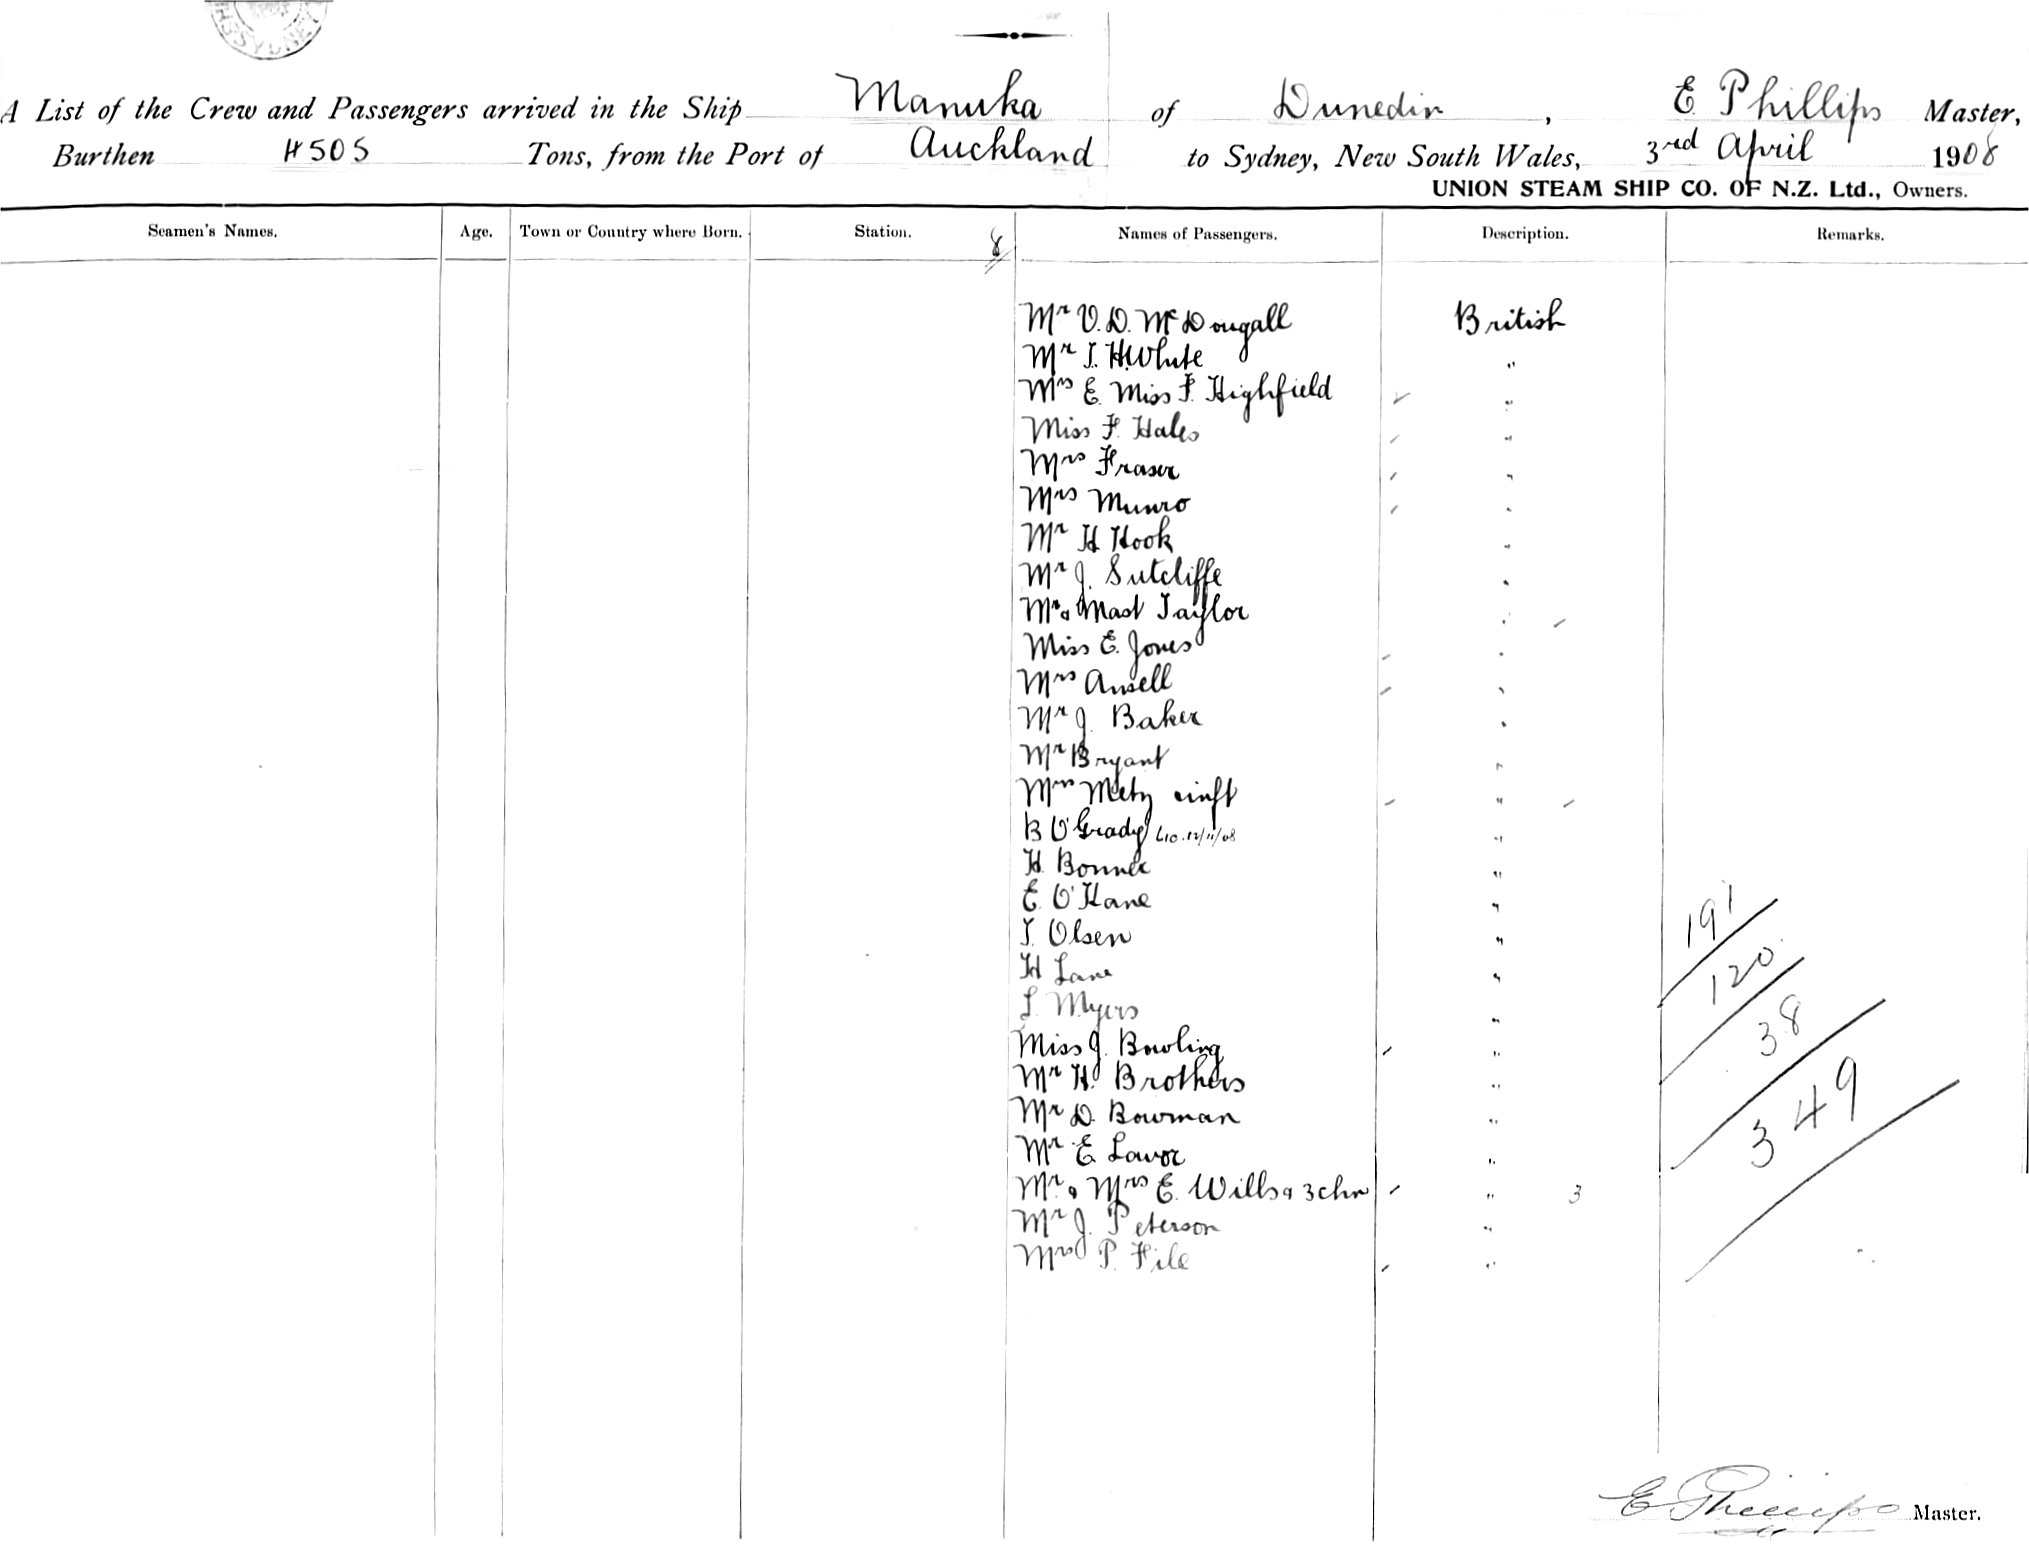 THE SYDNEY
A List of the Crew and Passengers arrived in the Ship Manuka of Dunedin, E Phillips Master,
Burthen 4505 Tons, from the Port of Auckland to Sydney, New South Wales, 3rd April 1908
UNION STEAM SHIP CO. OF N.Z. Ltd., Owners.
Seamen's Names. Age. Town or Country where Born. Station. 8 Names of Passengers. Description. Remarks.
Mr V. D. McDougall British
Mr I. H. White "
Mrs E. Miss F. Highfield "
Miss F. Hales "
Mrs Fraser "
Mrs Munro "
Mr H Hook "
Mr J. Sutcliffe "
Mr & Mast Taylor "
Miss E. Jones "
Mrs Ansell "
Mr J. Baker "
Mr Bryant "
Mrs Metz "
B O'Grady 12/11/08 "
H. Bonner "
E. O'Kane "
T. Olsen "
H Lane "
L. Myers "
Miss J. Bowling "
Mr H. Brothers "
Mr D. Bowman "
Mr E. Lavor "
Mr & Mrs E. Wills & 3 chn " 3
Mr J. Peterson "
Mrs P. File "
191
120
38
349
E Phillips Master.